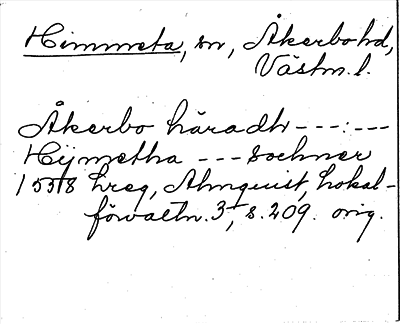 Himmeta, sn, Åkerbo hd,
Västm. l.
Åkerbo häradh ---:---
Hijmetha --- Sochner
1538 hreg, Almquist, Lokal-
förvaltn. 3, s. 209. orig.